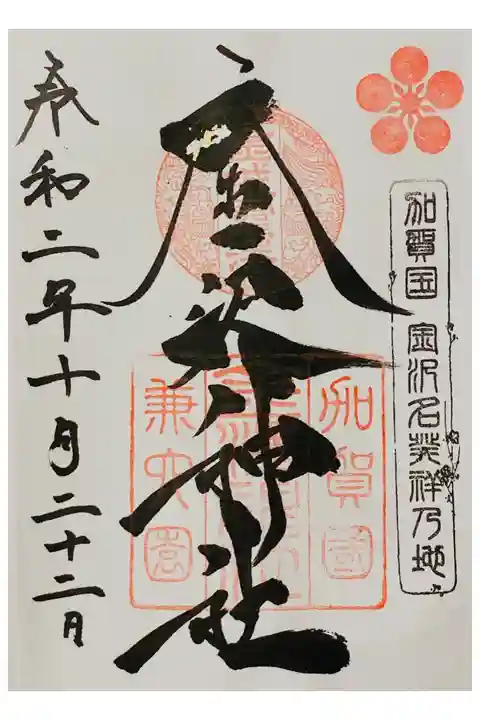 加賀国 金沢名発祥乃地
金澤神社
加賀國
金澤神社
兼六園
令和二年十月二十二日